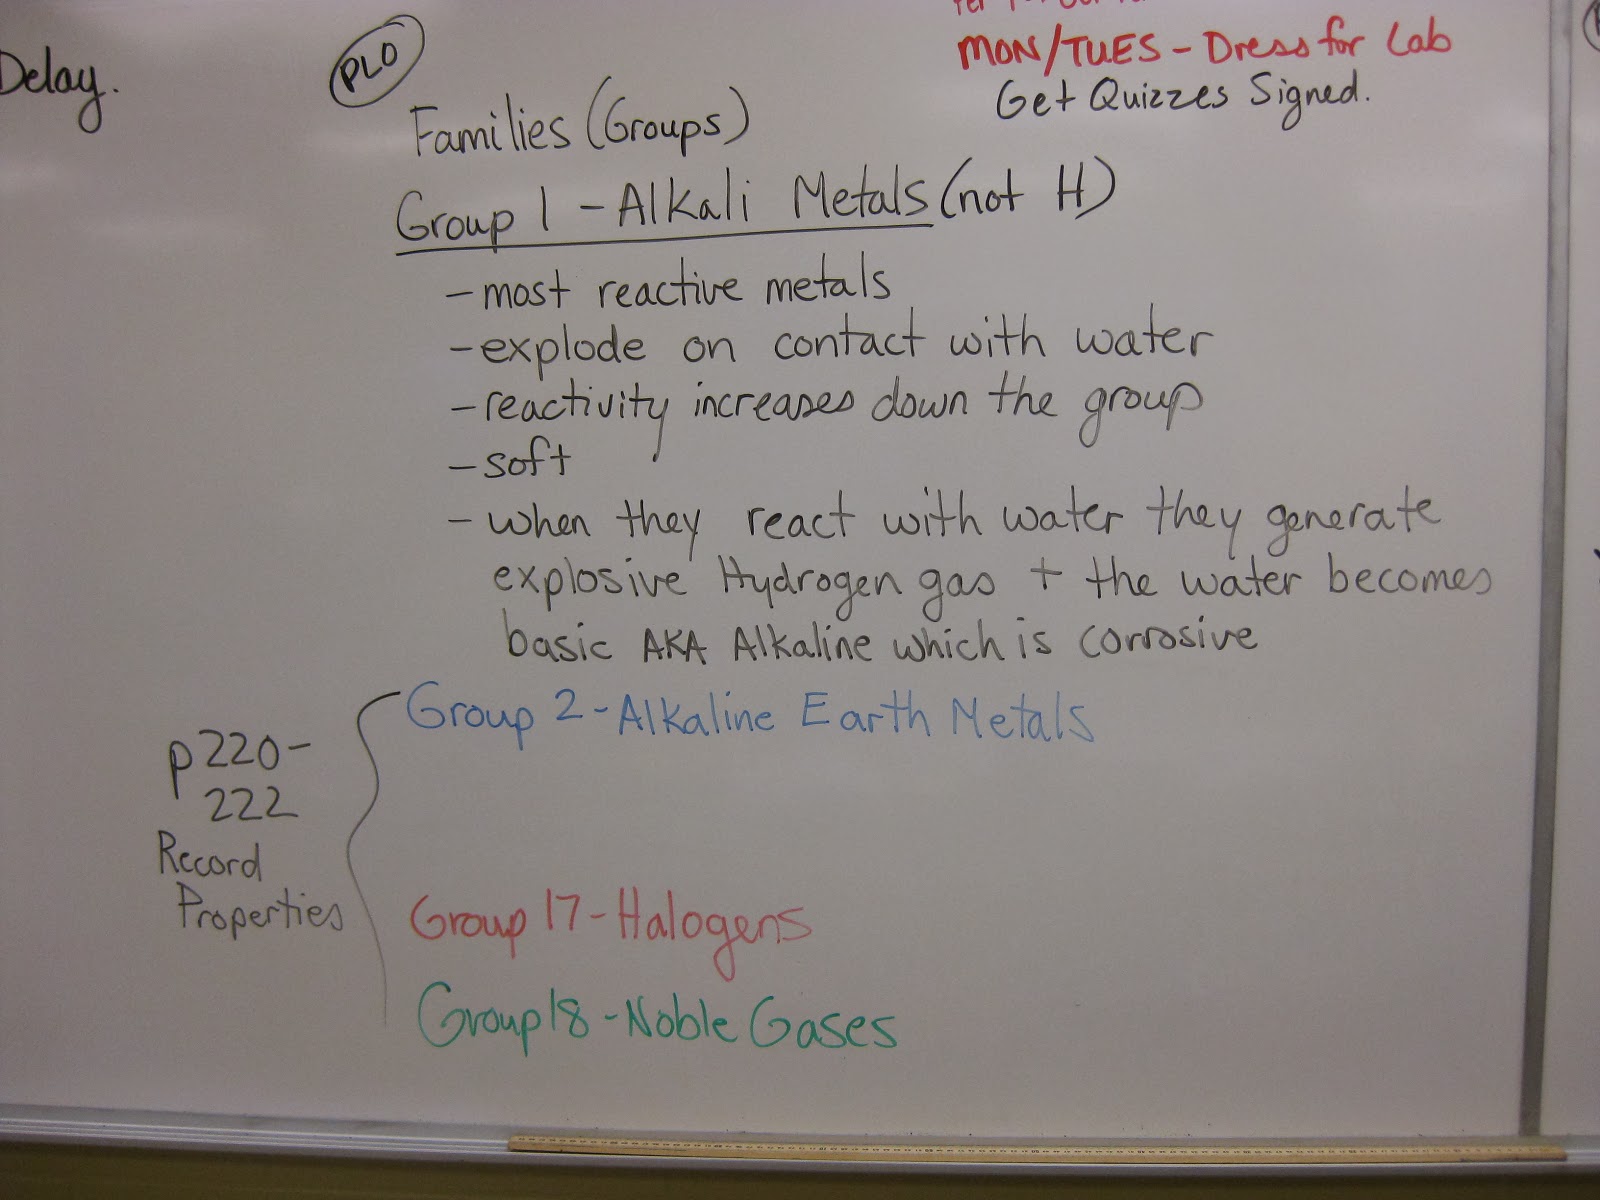 MON/TUES - Dress for Lab
Get Quizzes Signed.
Delay.
PLO
Families (Groups)
Group 1 - Alkali Metals (not H)
- most reactive metals
- explode on contact with water
- reactivity increases down the group
- soft
- when they react with water they generate
explosive Hydrogen gas + the water becomes
basic AKA Alkaline which is corrosive
p220-
222
Record
Properties
Group 2 - Alkaline Earth Metals
Group 17 - Halogens
Group 18 - Noble Gases